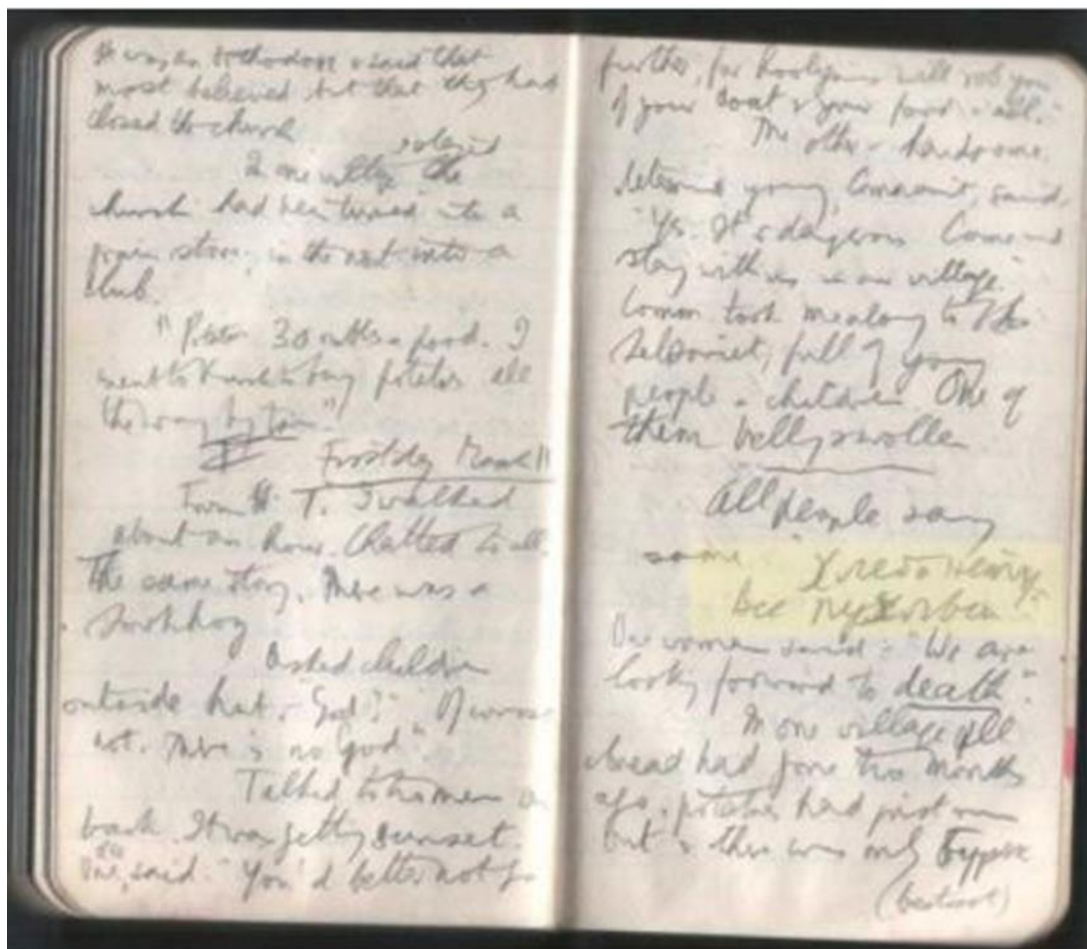 most believed but that they had
closed the church
In one village the
church had been turned into a
grain store, in the next into a
club.
30 a pood. I
went to to buy potatoes all
the way by
From T. I walked
about an hour. Chatted to all.
The same story. There was a
Asked children
outside hut. "God?" "Of course
not. There is no god"
Talked to two men on
back. It was getting sunset.
One said "You'd better not go
further, for hooligans will rob you
of your coat & your food & all."
The other - handsome
young Communist, said.
"Yes. It is dangerous. Come and
stay with us in our village"
took me along to
Selsoviet, full of young
people & children. One of
them belly swollen
All people say
same "
все
One woman said: "We are
looking forward to death".
In one village all
bread had gone two months
ago, potatoes had just run
out & there was only Буряк
(beetroot)